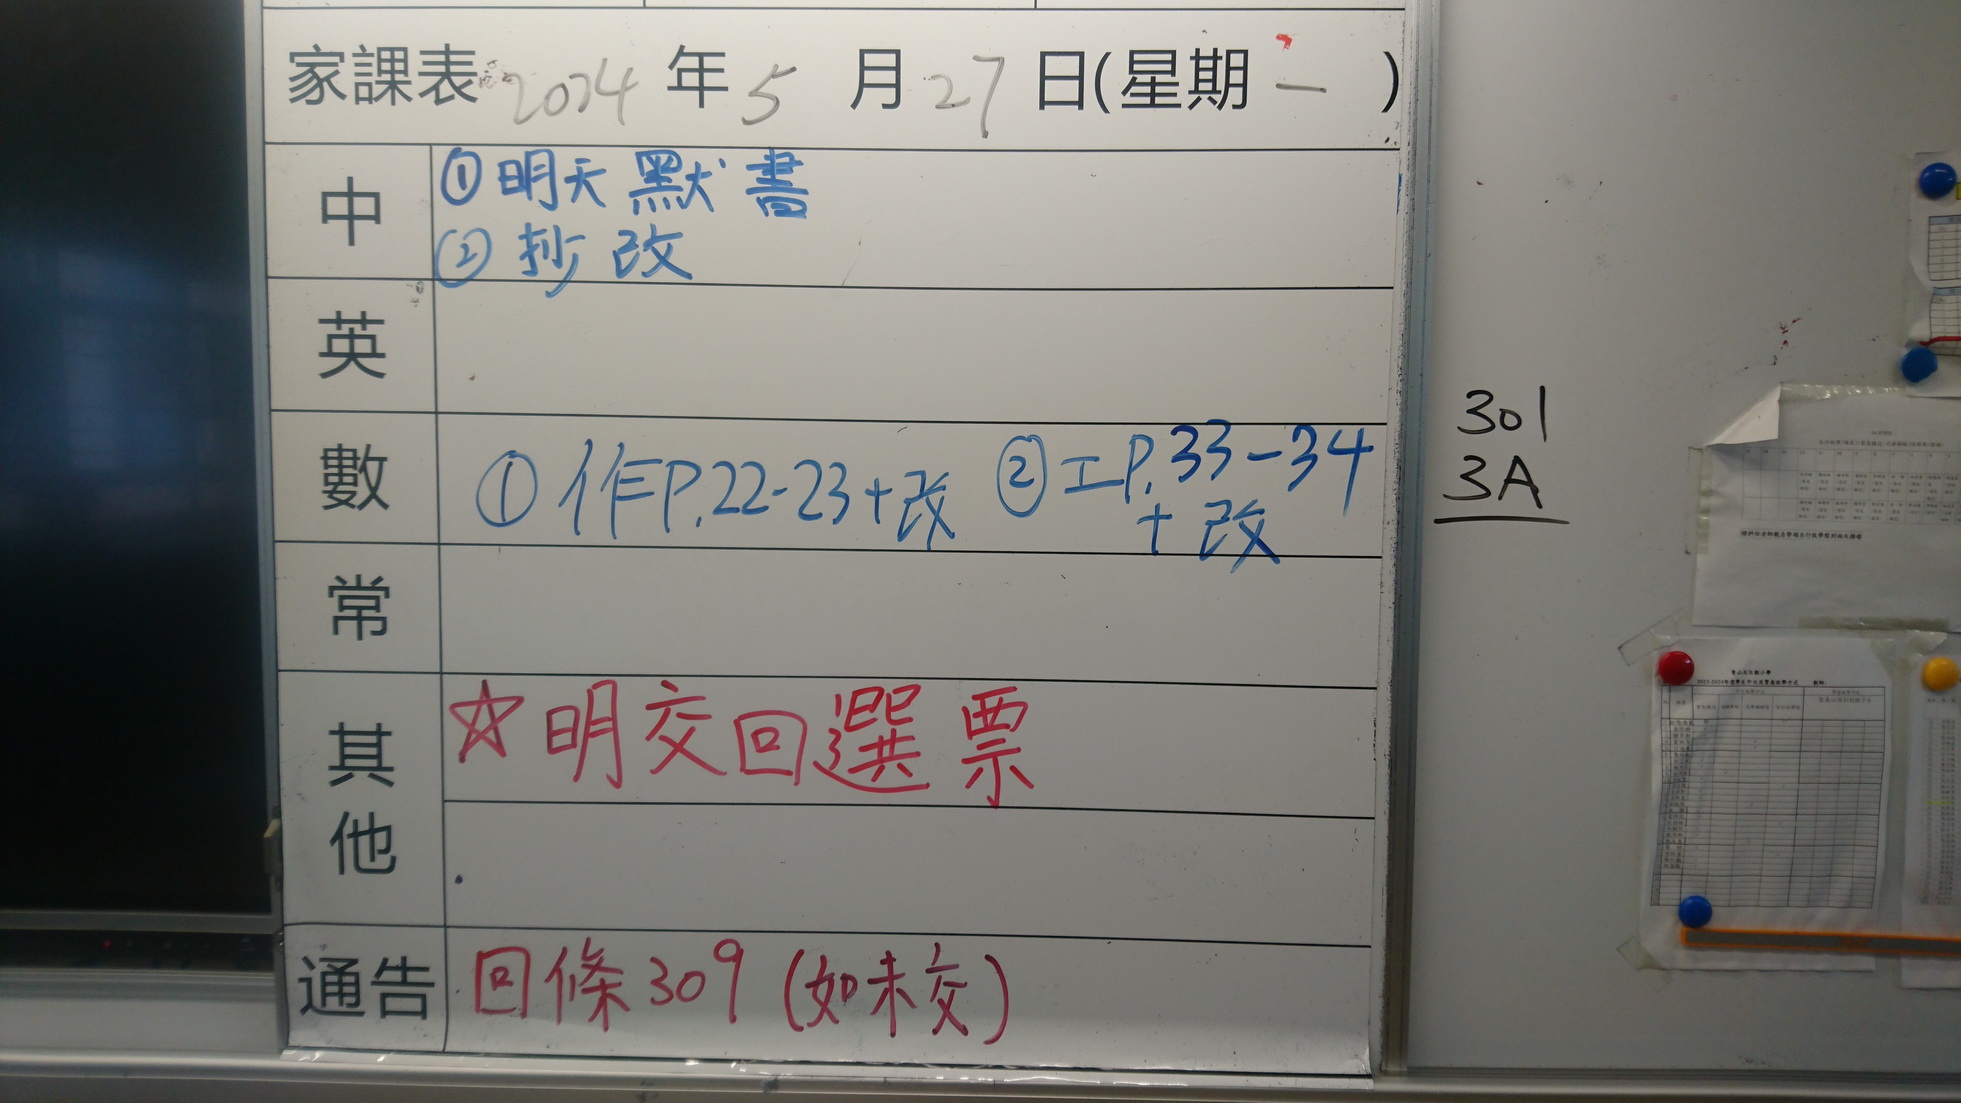 家課表 2024 年 5 月 27 日(星期 一 )
中
① 明天默書
② 抄改
英
數
① 作P.22-23+改 ② 工P.33-34
+改
常
其他
☆ 明交回選票
通告
回條309 (如未交)
301
3A